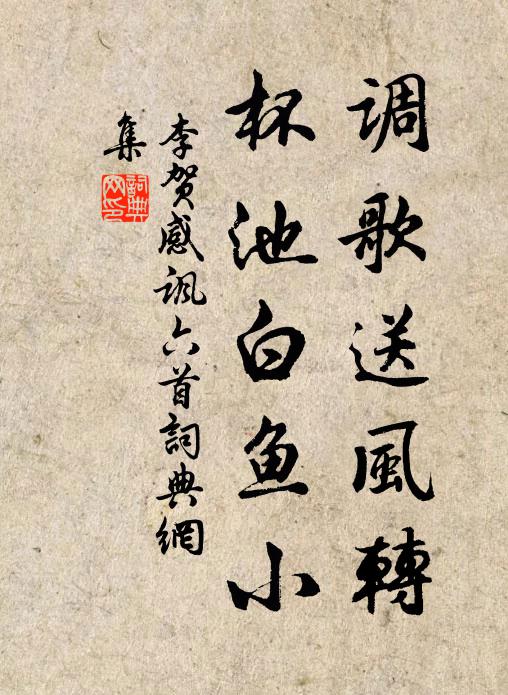 调歌送風轉
杯池白鱼小
李贺感讽六首詞典網
集
詞典网印